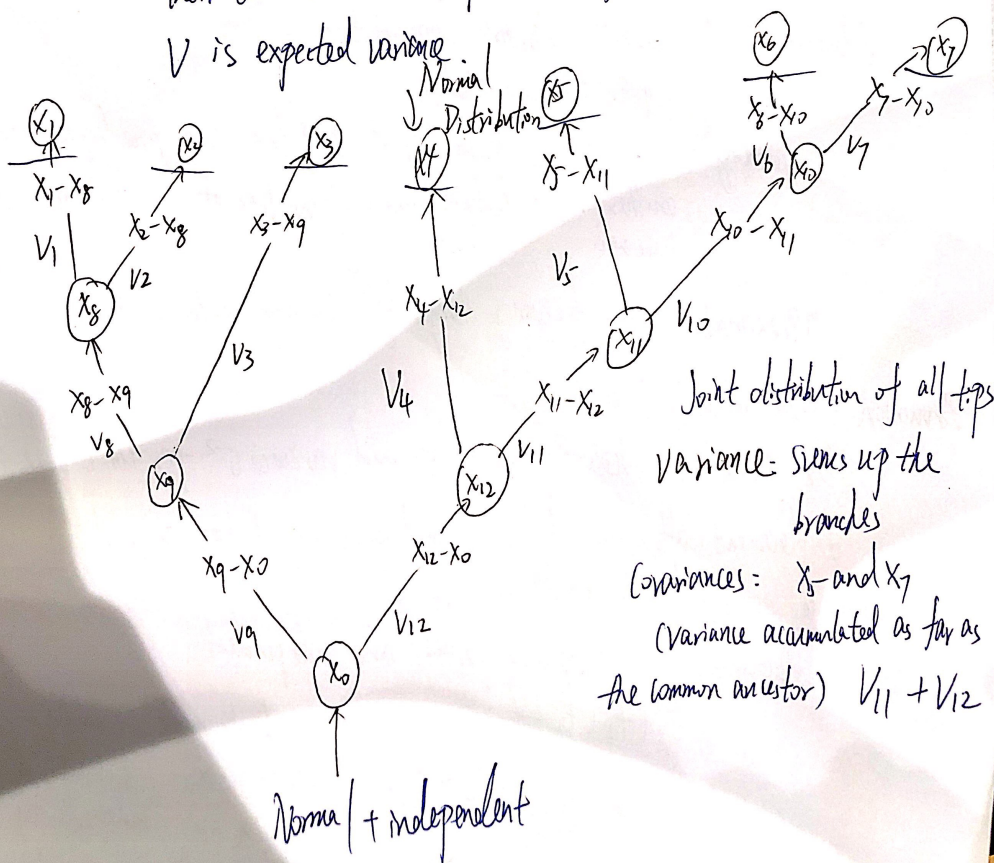 V is expected variance
Normal
Distribution
X1
X2
X3
X4
X5
X6
X7
X1-X8
X2-X8
X3-X9
X4-X12
X5-X11
X8-X10
X7-X10
V1
V2
V3
V4
V5
V6
V7
X8
X10
X10-X11
X11
V10
X8-X9
V8
X11-X12
V11
X9
X12
X9-X0
V9
X12-X0
V12
X0
Normal + independent
Joint distribution of all tips
variance: sums up the
branches
Covariances: X5 and X7
(variance accumulated as far as
the common ancestor) V11 + V12